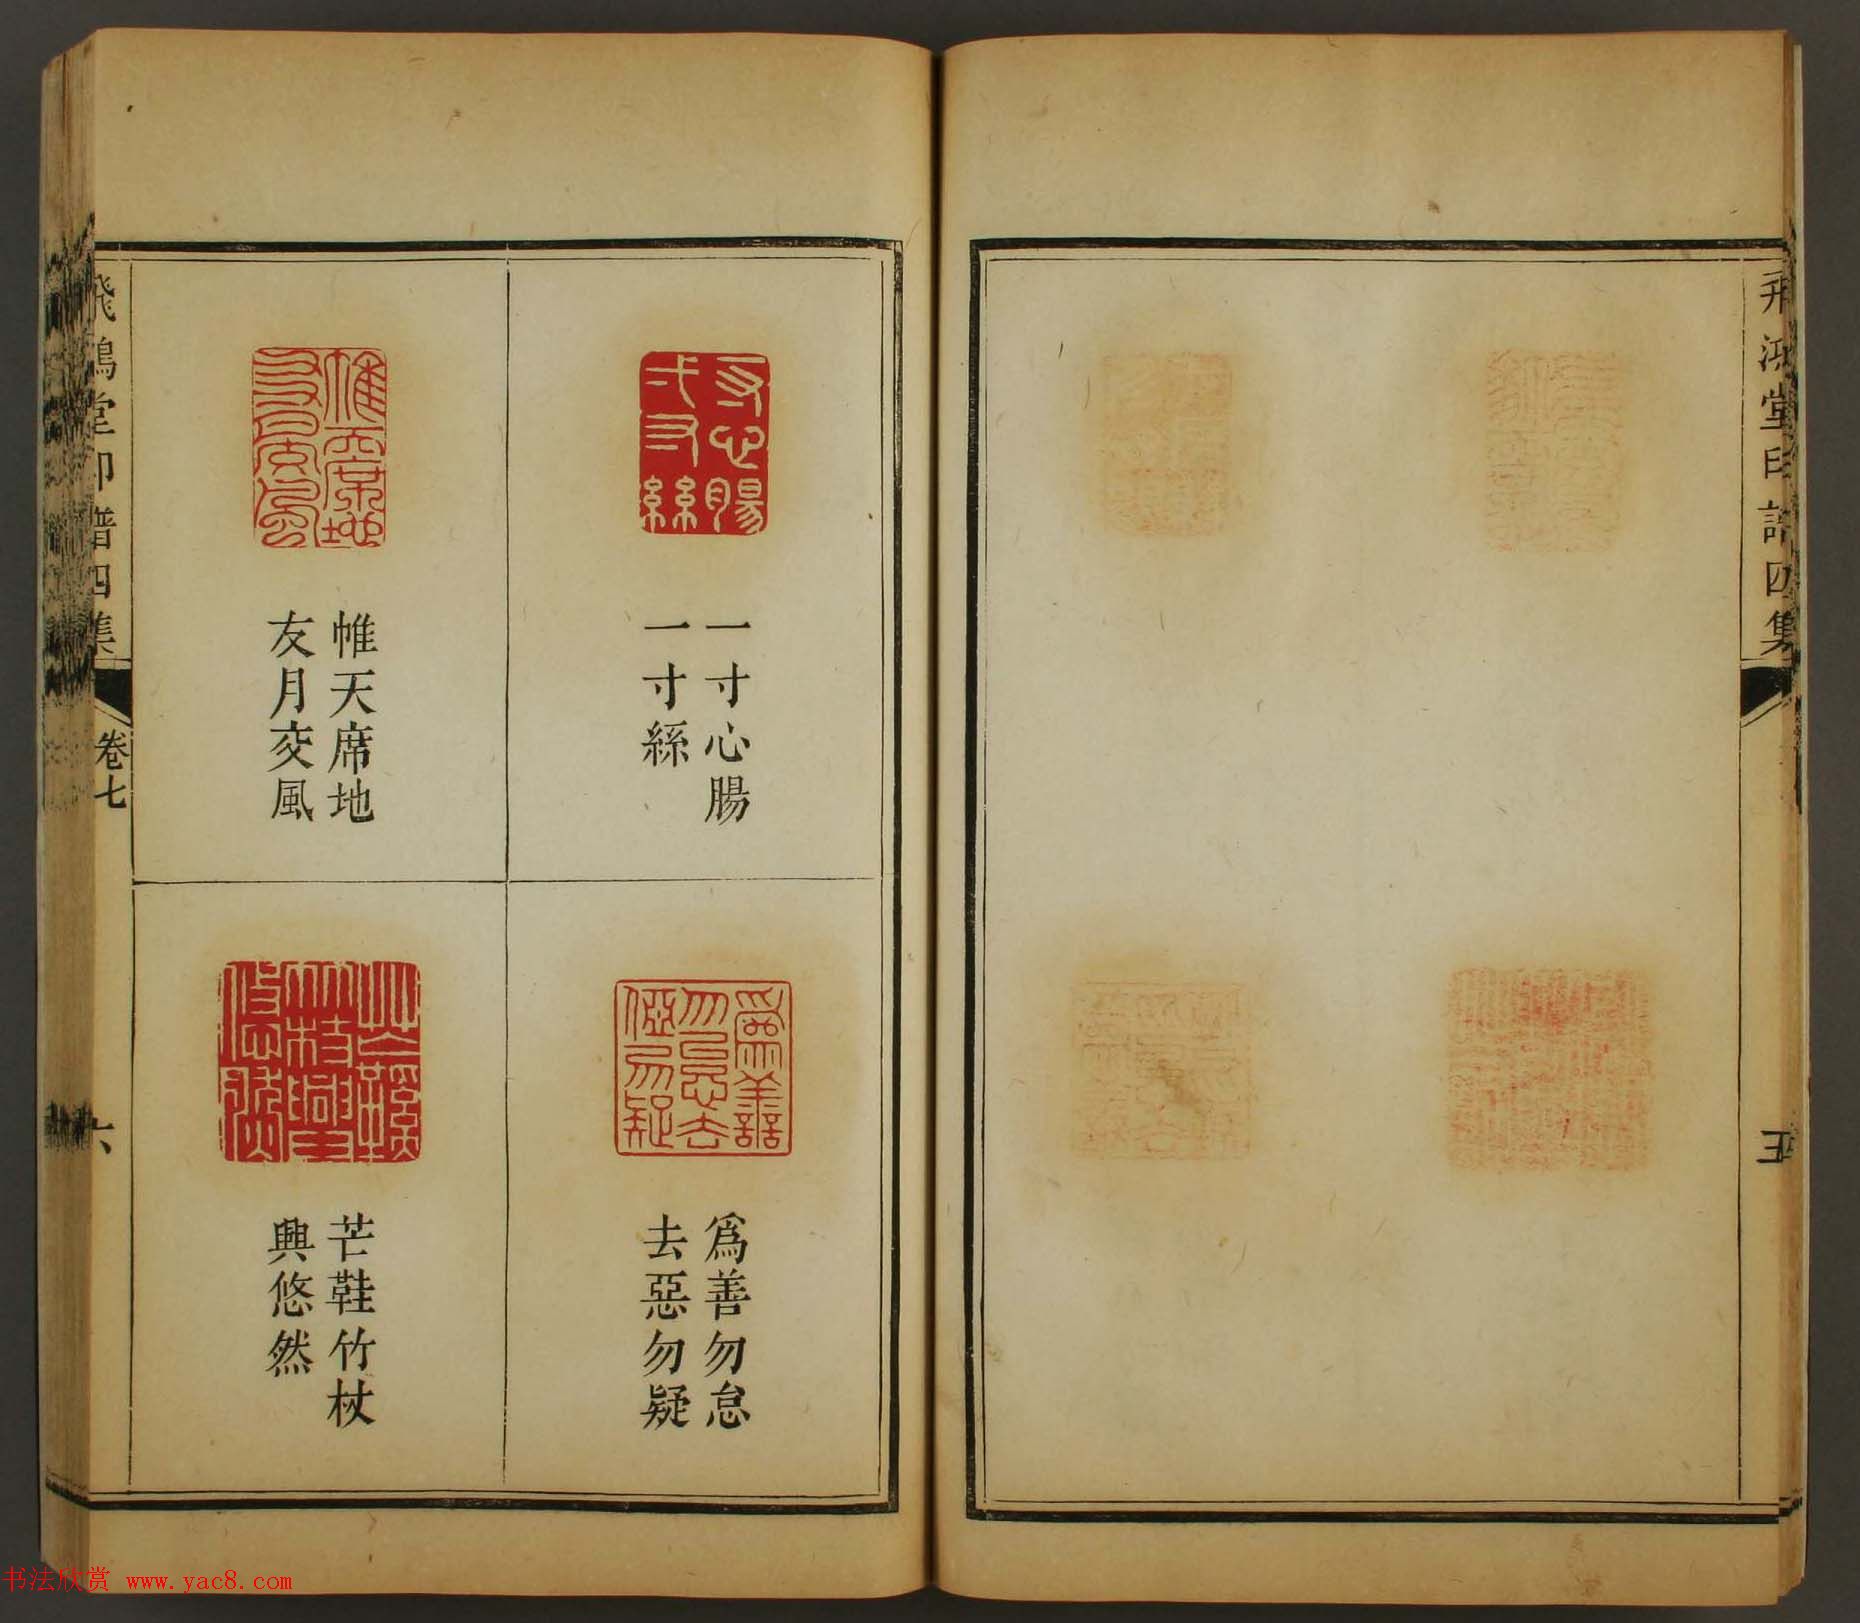 飛鴻堂印譜四集
五
一寸心腸
一寸絲
為善勿怠
去惡勿疑
帷天席地
友月交風
芒鞋竹杖
興悠然
飛鴻堂印譜四集
卷七
六
书法欣赏 www.yac8.com